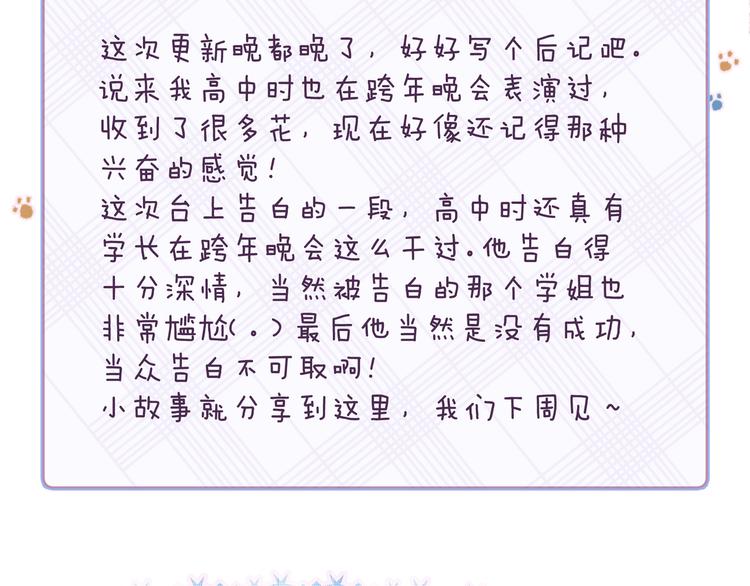 这次更新晚都晚了，好好写个后记吧。
说来我高中时也在跨年晚会表演过，
收到了很多花，现在好像还记得那种
兴奋的感觉！
这次台上告白的一段，高中时还真有
学长在跨年晚会这么干过。他告白得
十分深情，当然被告白的那个学姐也
非常尴尬(。)最后他当然是没有成功，
当众告白不可取啊！
小故事就分享到这里，我们下周见～